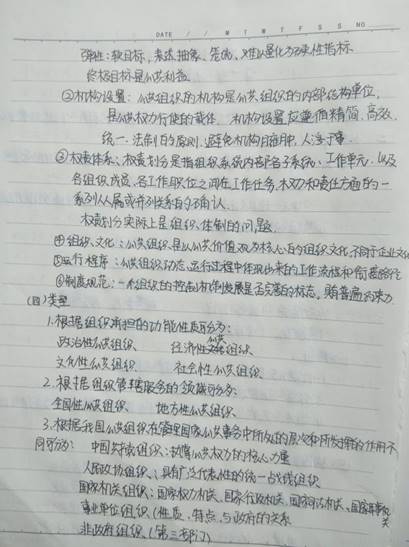 DATE / / M T W T F S S NO.
弹性：软目标，表述抽象、笼统，难以量化为硬性指标
终极目标是公共利益
②机构设置：公共组织的机构是公共组织的内部结构单位，
是公共权力行使的载体。机构设置应遵循精简、高效、
统一、法制的原则，避免机构臃肿，人浮于事
③权责体系：权责划分是指组织系统内部各子系统、工作单元，以及
各组织成员、各工作职位之间在工作任务、权力和责任方面的一
系列从属或并列关系的确认
权责划分实际上是组织体制的问题
④组织文化：公共组织是以公共价值观为核心的组织文化，不同于企业文化
⑤运行程序：公共组织动态运行过程中体现出来的工作流程和衔接路径
⑥制度规范：一个组织的控制机制发展是否完善的标志，具普遍约束力
(四)类型
1.根据组织承担的功能性质可分为：
政治性公共组织 经济性公共组织
文化性公共组织 社会性公共组织
2.根据组织管辖服务的领域可分为：
全国性公共组织 地方性公共组织
3.根据我国公共组织在管理国家公共事务中所处的层次和所发挥的作用不
同可分为：中国共产党组织：执掌公共权力的核心力量
人民政协组织：具有广泛代表性的统一战线组织
国家机关组织：国家权力机关、国家行政机关、国家司法机关、国家军事机关
事业单位组织（性质、特点、与政府的关系
非政府组织（第三部门）